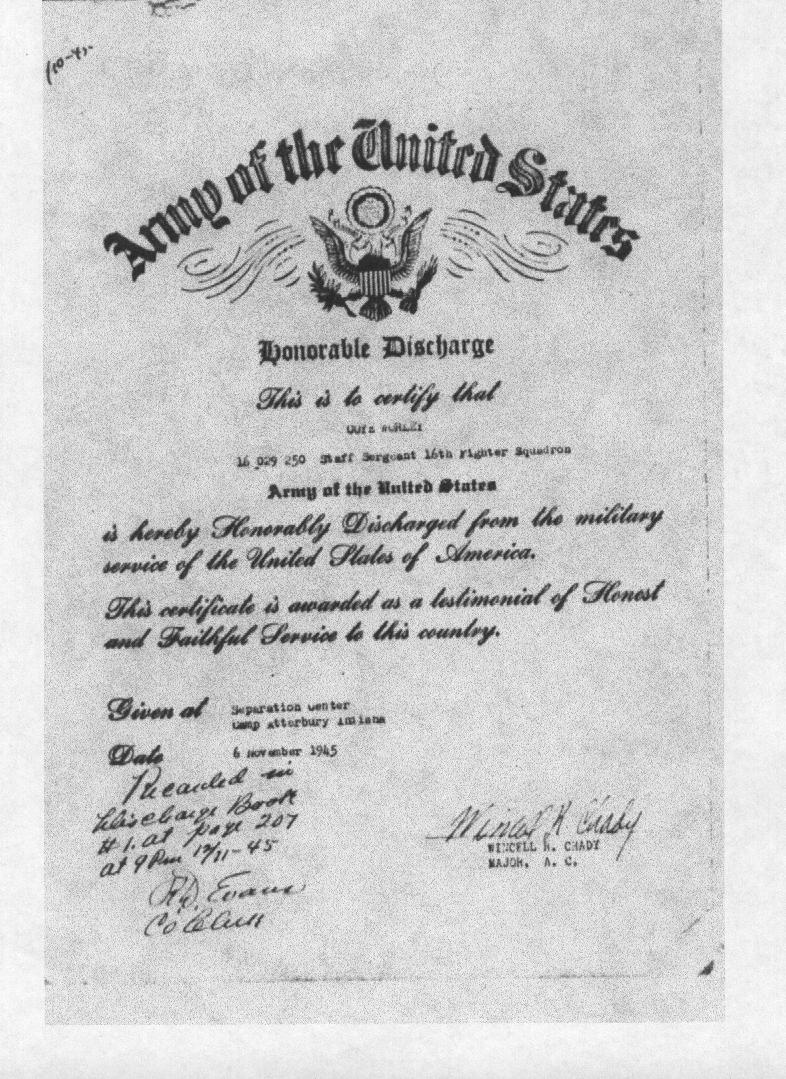 Army of the United States
Honorable Discharge
This is to certify that
WORLEY
16 029 250 Staff Sergeant 16th Fighter Squadron
Army of the United States
is hereby Honorably Discharged from the military
service of the United States of America.
This certificate is awarded as a testimonial of Honest
and Faithful Service to this country.
Given at Separation Center
Camp Atterbury Indiana
Date 6 November 1945
Recorded in
Discharge Book
# 1. at page 207
at 9 Pm 12/11-45
R.D. Evans
Co Clerk
WINCELL R. CHADY
MAJOR, A. C.